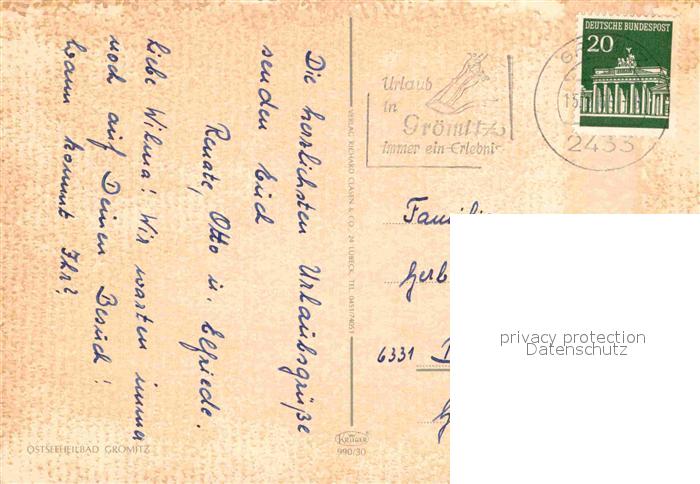 Die herzlichsten Urlaubsgrüße
senden Euch
Renate, Otto u. Elfriede.
Liebe Wilma! Wir warten immer
noch auf Deinen Besuch!
Wann kommt Ihr?
OSTSEEHEILBAD GRÖMITZ
VERLAG RICHARD CLASEN & CO. 24 LÜBECK, TEL. 0451/74051
KRÜGER
990/30
Urlaub
in
Grömitz
immer ein Erlebnis
DEUTSCHE BUNDESPOST
20
2433
Familie
Herb
6331
privacy protection
Datenschutz